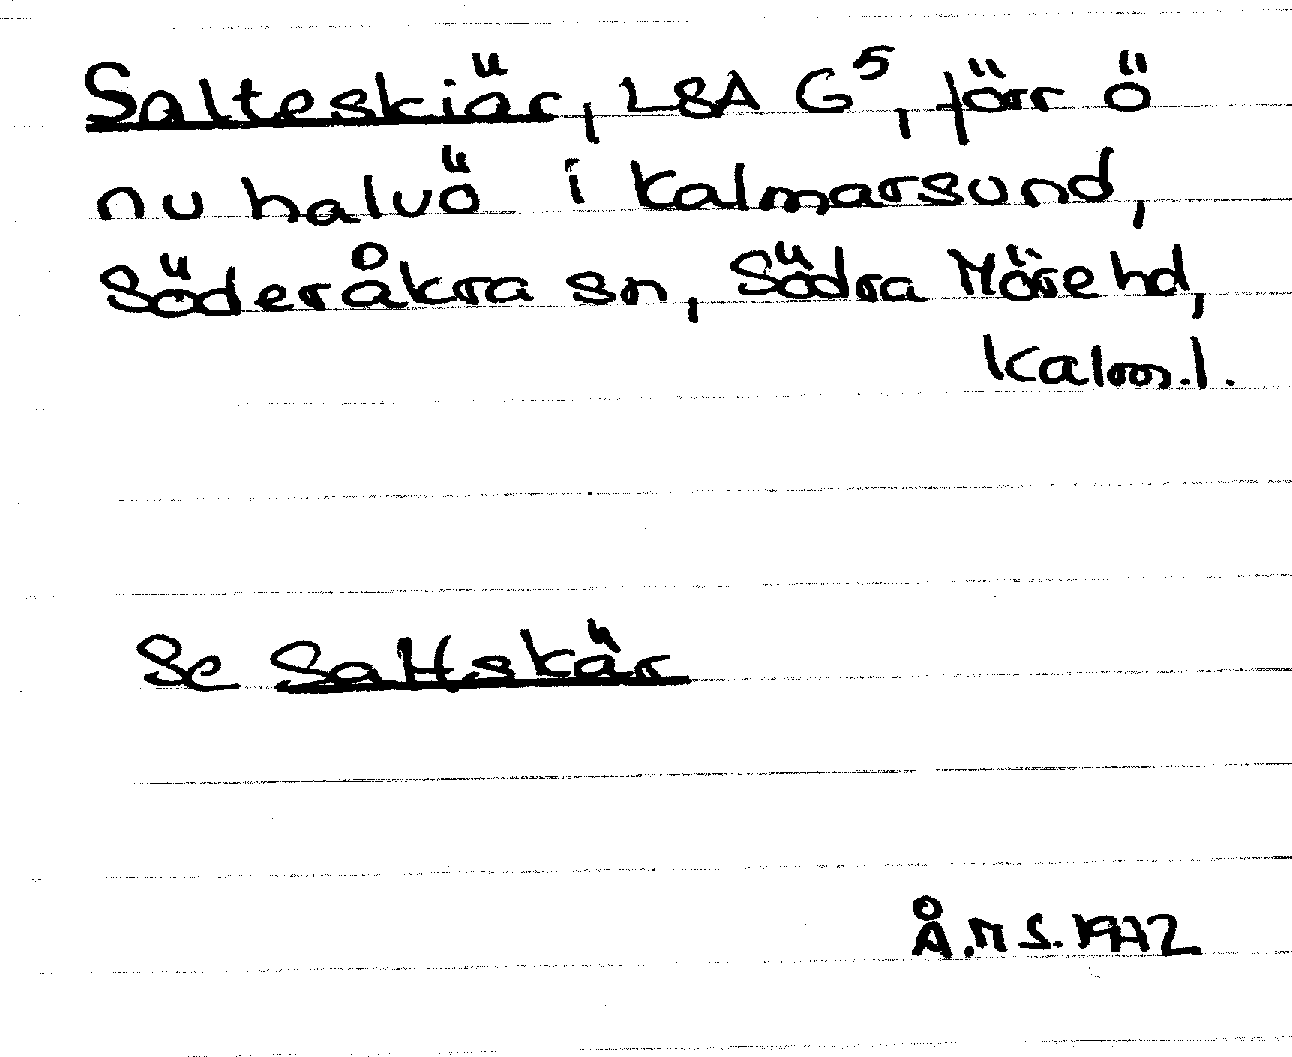 Salteskiär, LSA G⁵, förr ö
nu halvö i Kalmarsund,
Söderåkra sn, Södra Möre hd,
Kalm.l.
Se Saltskär
Å.M S. 1972